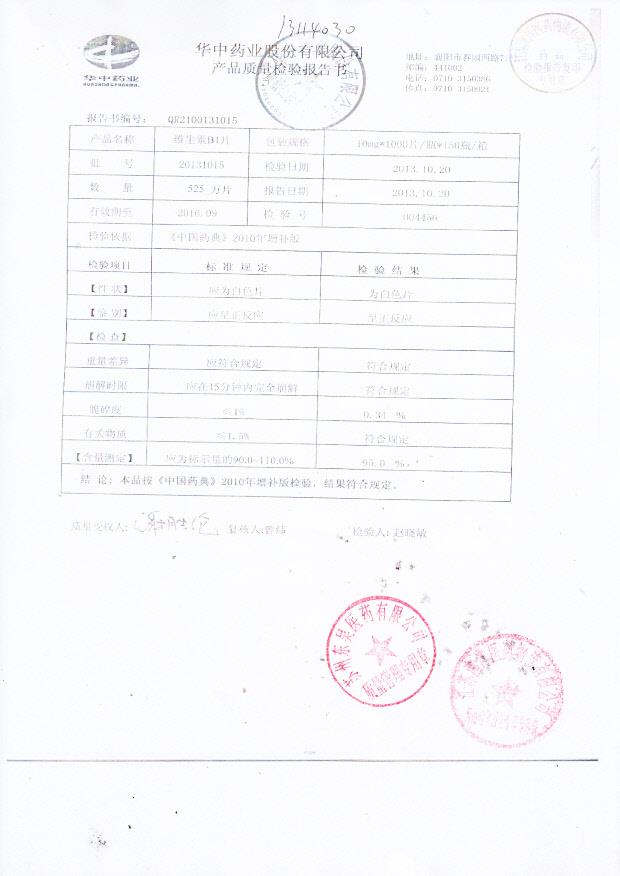 1311030
华中药业股份有限公司
产品质量检验报告书
华中药业
邮编：441002
电话：0710-3150286
传真：0710-3150921
报告书编号： QR2100131015
产品名称 维生素B1片 包装规格 10mg*1000片/瓶*150瓶/箱
批 号 20131015 检验日期 2013.10.20
数 量 525 万片 报告日期 2013.10.20
有效期至 2016.09 检 验 号 004456
检验依据 《中国药典》2010年增补版
检验项目 标 准 规 定 检 验 结 果
【性 状】 应为白色片 为白色片
【鉴 别】 应呈正反应 呈正反应
【检 查】
重量差异 应符合规定 符合规定
崩解时限 应在15分钟内完全崩解 符合规定
脆碎度 ≤1% 0.34 %
有关物质 ≤1.5% 符合规定
【含量测定】 应为标示量的90.0~110.0% 95.0 %
结 论：本品按《中国药典》2010年增补版检验，结果符合规定。
质量受权人： 复核人：曾纬 检验人：赵晓敏
苏州东吴医药有限公司
质量管理专用章